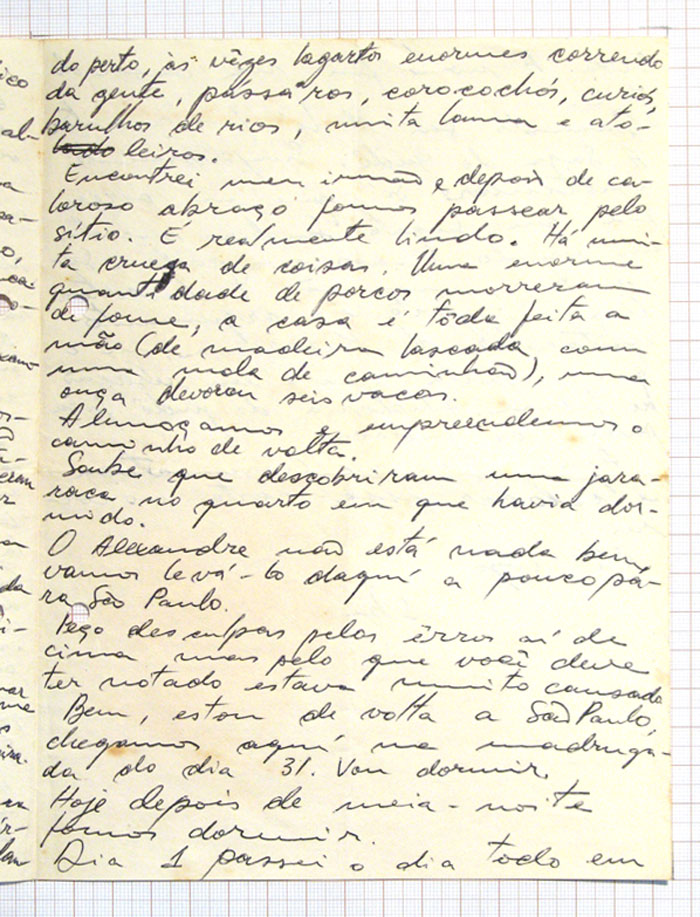 do perto, às vêzes lagartos enormes correndo
da gente, passaros, corocochós, curiós,
barulhos de rios, muita lama e ato-
leiros.
Encontrei meu irmão e depois de ca-
loroso abraço fomos passear pelo
sítio. É realmente lindo. Há mui-
ta de coisas. Uma enorme
quantidade de porcos morreram
de fome, a casa é tôda feita a
mão (de madeira lascada, com
uma mola de caminhão), uma
onça devorou seis vacas.
Almoçamos e empreendemos o
caminho de volta.
Soube que descobriram uma jara-
raca no quarto em que havia dor-
mido.
O Alexandre não está nada bem,
vamos levá-lo daqui a pouco pá-
ra São Paulo.
Peço desculpas pelos êrros aí de
cima mas pelo que você deve
ter notado estava muito cansado
Bem, estou de volta a São Paulo,
chegamos aqui na madruga-
da do dia 31. Vou dormir.
Hoje depois de meia-noite
fomos dormir.
Dia 1 passei o dia todo em